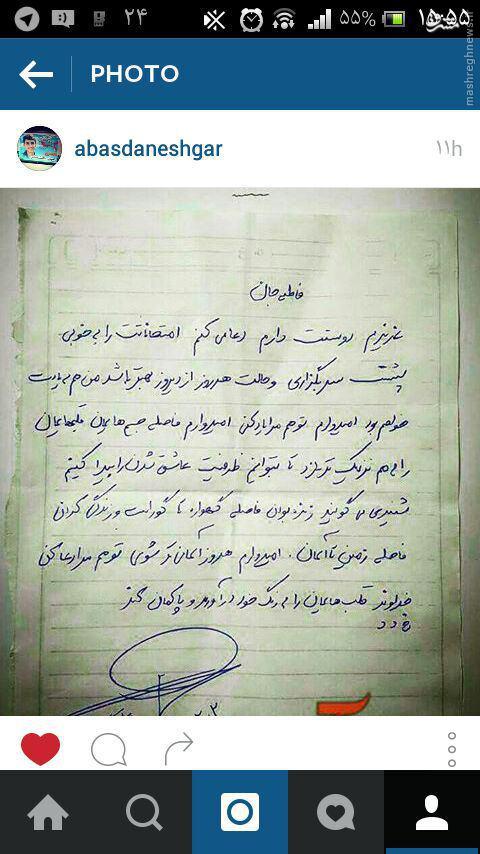 ۲۴
۵۵%
۱۵:۵۵
mashreghnews.ir
PHOTO
abasdaneshgar
۱۱h
فاطمه جان
عزیزم دوستت دارم دعا می کنم امتحاناتت را به خوبی
پشت سر بگذاری و حالت هر روز از دیروز بهتر باشد من هم به یادت
خواهم بود امیدوارم تو هم مرا یاد کنی امیدوارم فاصله جسم هایمان قلبهایمان
را به هم نزدیک تر سازد تا بتوانیم ظرفیت عاشق شدن را پیدا کنیم
شنیدی می گویند زنده بودن فاصله گهواره تا گور است و زندگی کردن
فاصله زمین تا آسمان. امیدوارم هر روز آسمانی تر شوی تو هم مرا دعا کن
خداوند قلب هایمان را به رنگ خود درآورد و پاکمان کند